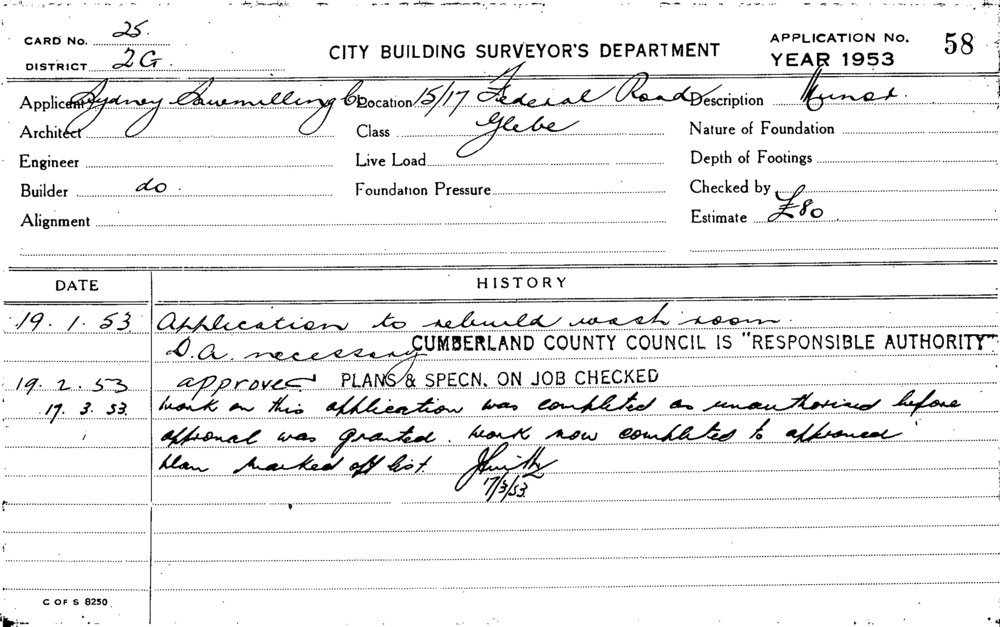 CARD No. 25.
DISTRICT 2G.
CITY BUILDING SURVEYOR'S DEPARTMENT
APPLICATION No. 58
YEAR 1953
Applicant Sydney Sawmilling Co Location 15/17 Federal Road Description Minor.
Architect Class Glebe Nature of Foundation
Engineer Live Load Depth of Footings
Builder do. Foundation Pressure Checked by
Alignment Estimate £80
DATE HISTORY
19. 1. 53 Application to rebuild wash room.
D.A. necessary CUMBERLAND COUNTY COUNCIL IS "RESPONSIBLE AUTHORITY"
19. 2. 53 approved PLANS & SPECN. ON JOB CHECKED
17. 3. 53. Work on this application was completed as unauthorised before
approval was granted. Work now completed to approved
plan marked off list.
17/3/53.
C OF S 8250